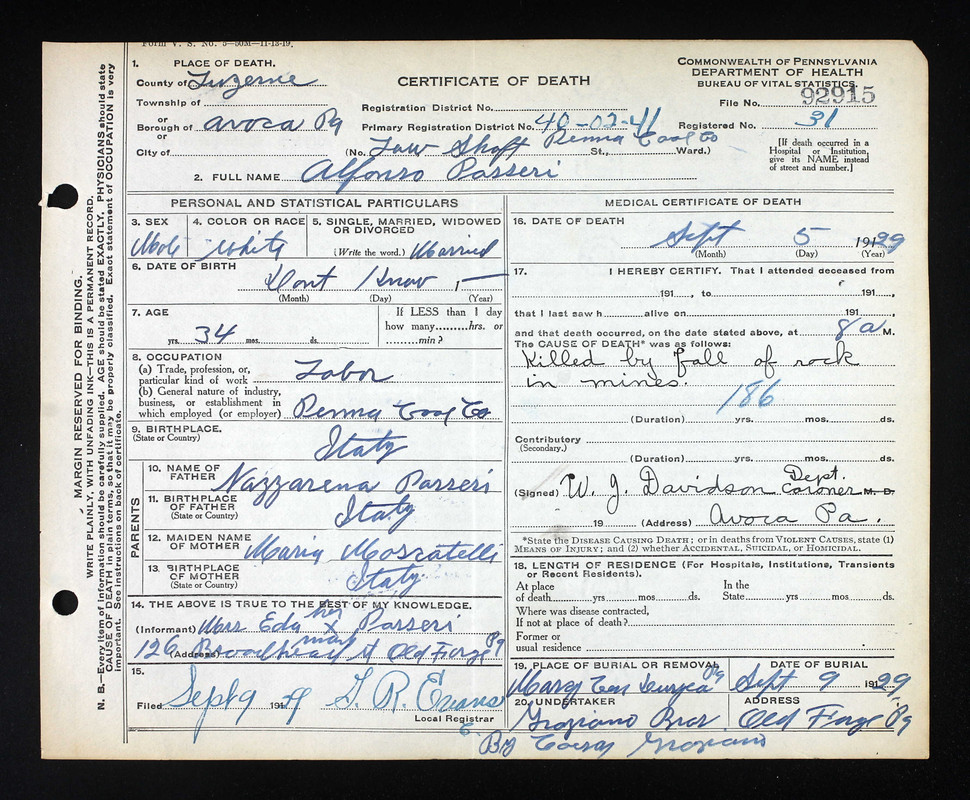 Form V. S. No. 5—50M—11-13-19.
MARGIN RESERVED FOR BINDING.
WRITE PLAINLY, WITH UNFADING INK—THIS IS A PERMANENT RECORD.
N. B.—Every item of information should be carefully supplied. AGE should be stated EXACTLY. PHYSICIANS should state
CAUSE OF DEATH in plain terms, so that it may be properly classified. Exact statement of OCCUPATION is very
important. See instructions on back of certificate.
1. PLACE OF DEATH.
County of Luzerne
Township of
or
Borough of Avoca Pa
or
City of
CERTIFICATE OF DEATH
Registration District No.
Primary Registration District No. 40-02-41
(No. Law Shaft Penna Coal Co St., Ward.)
COMMONWEALTH OF PENNSYLVANIA
DEPARTMENT OF HEALTH
BUREAU OF VITAL STATISTICS.
File No. 92915
Registered No. 31
[If death occurred in a
Hospital or Institution,
give its NAME instead
of street and number.]
2. FULL NAME Alfonso Passeri
PERSONAL AND STATISTICAL PARTICULARS
3. SEX
Male
4. COLOR OR RACE
White
5. SINGLE, MARRIED, WIDOWED
OR DIVORCED
(Write the word.) Married
6. DATE OF BIRTH
Dont Know 1—
(Month) (Day) (Year)
7. AGE
34 yrs. mos. ds.
If LESS than 1 day
how many hrs. or
min?
8. OCCUPATION
(a) Trade, profession, or
particular kind of work Labor
(b) General nature of industry,
business, or establishment in
which employed (or employer) Penna Coal Co
9. BIRTHPLACE.
(State or Country) Italy
PARENTS
10. NAME OF
FATHER Nazzarena Passeri
11. BIRTHPLACE
OF FATHER
(State or Country) Italy
12. MAIDEN NAME
OF MOTHER Maria Moscatelli
13. BIRTHPLACE
OF MOTHER
(State or Country) Italy
14. THE ABOVE IS TRUE TO THE BEST OF MY KNOWLEDGE.
(Informant) Mrs Eda her X mark Passeri
(Address) 126 Broadhead St Old Forge Pa
15.
Filed Sept 9 1929 Local Registrar
MEDICAL CERTIFICATE OF DEATH
16. DATE OF DEATH
Sept 5 1929
(Month) (Day) (Year)
17. I HEREBY CERTIFY. That I attended deceased from
191 , to 191 ,
that I last saw h alive on 191 ,
and that death occurred, on the date stated above, at 8 a M.
The CAUSE OF DEATH* was as follows:
Killed by fall of rock
in mines.
186
(Duration) yrs. mos. ds.
Contributory
(Secondary.)
(Duration) yrs. mos. ds.
(Signed) W. J. Davidson Dept. Coroner M. D.
19 (Address) Avoca Pa.
*State the DISEASE CAUSING DEATH; or in deaths from VIOLENT CAUSES, state (1)
MEANS OF INJURY; and (2) whether ACCIDENTAL, SUICIDAL, or HOMICIDAL.
18. LENGTH OF RESIDENCE (For Hospitals, Institutions, Transients
or Recent Residents).
At place
of death yrs mos ds.
In the
State yrs mos ds.
Where was disease contracted,
If not at place of death?
Former or
usual residence
19. PLACE OF BURIAL OR REMOVAL
Pa
DATE OF BURIAL
Sept 9 1929
20. UNDERTAKER
Graziano Bros
ADDRESS
Old Forge Pa
Graziano